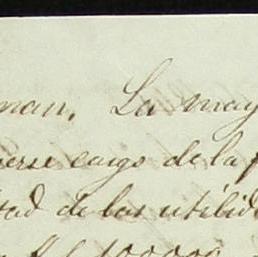 man. La may
erse cargo de la f
tad de las utilid